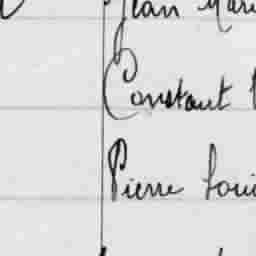 Jean Mari
Constant
Pierre Loui